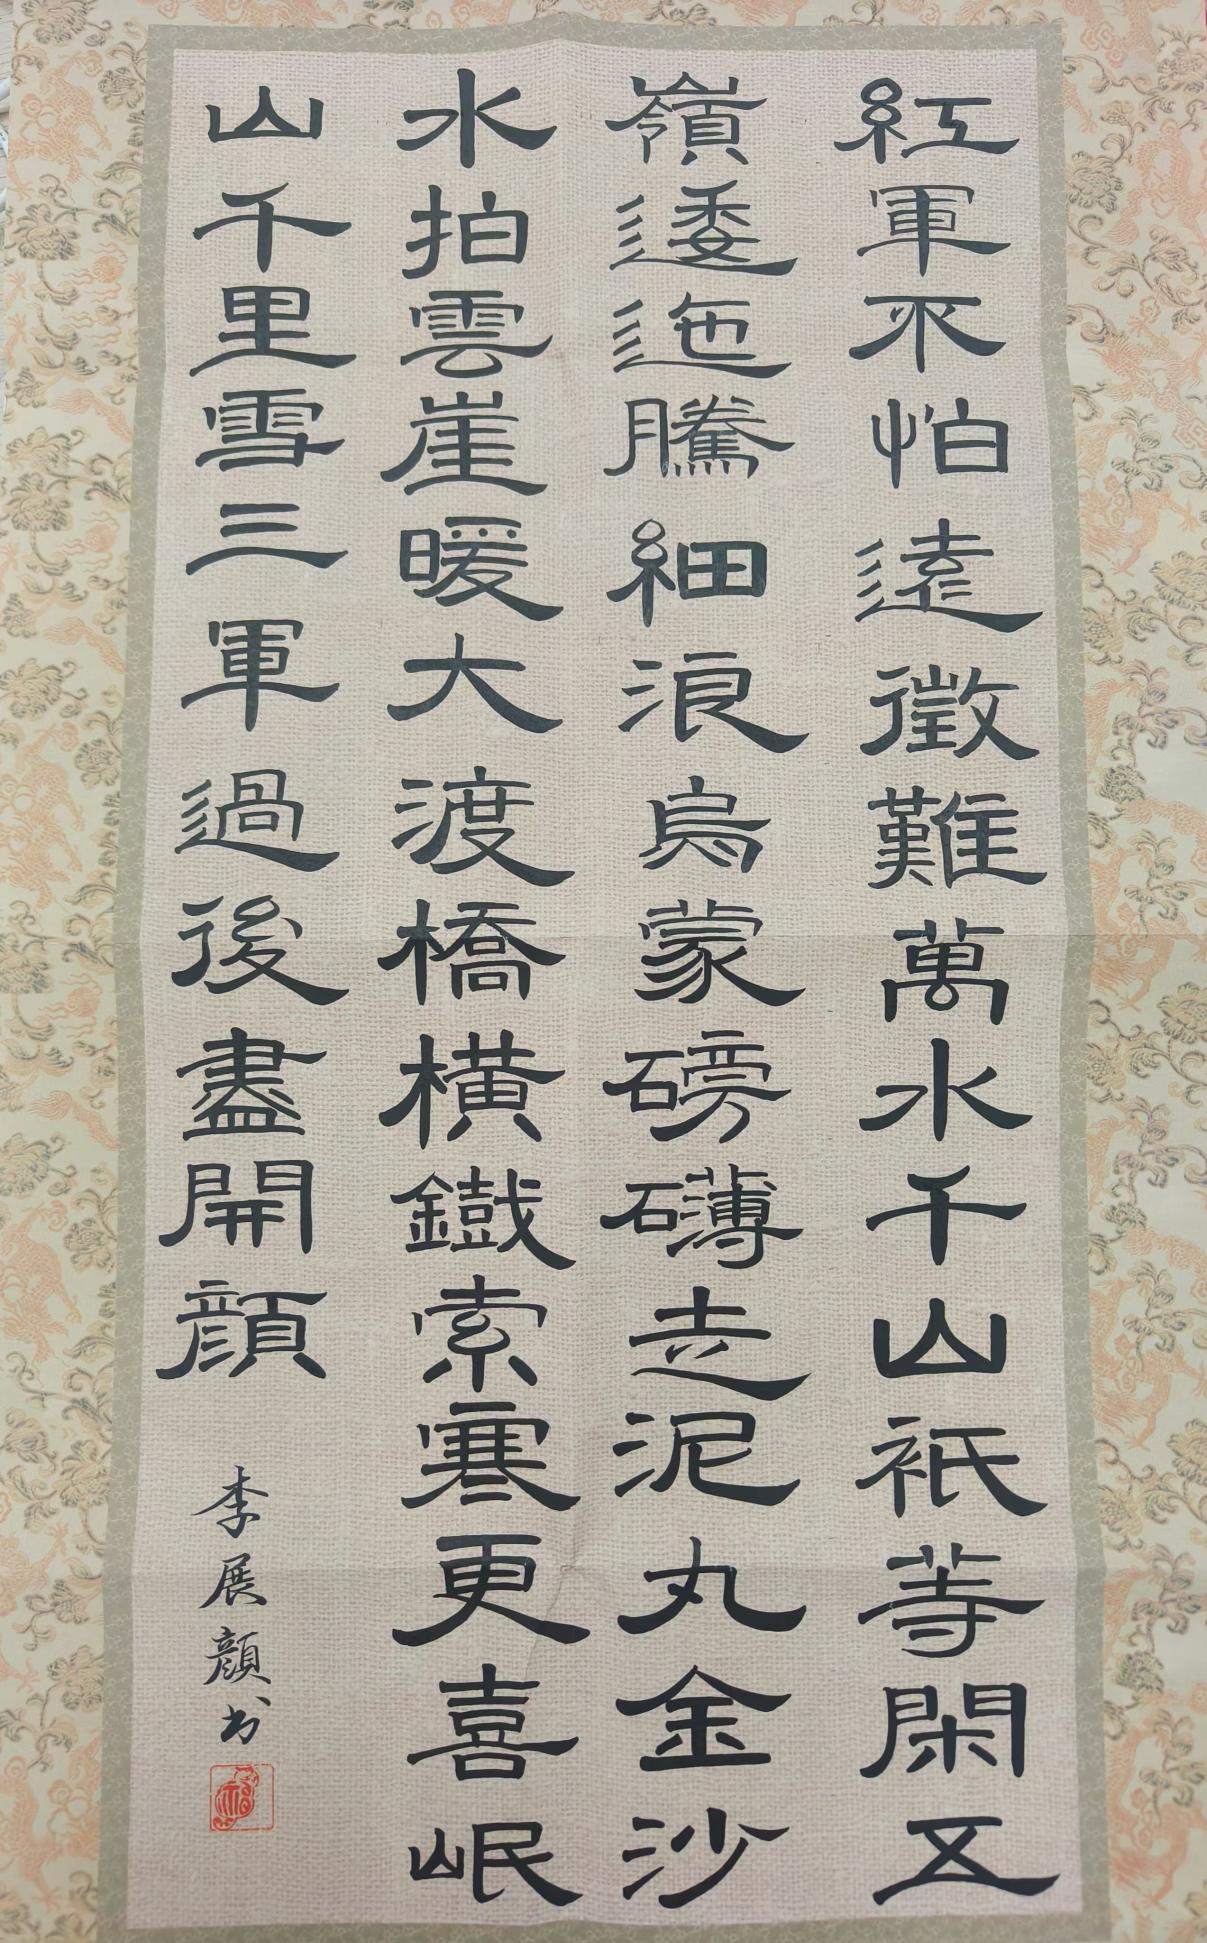 紅軍不怕遠徵難萬水千山衹等閑五
嶺逶迤騰細浪烏蒙磅礴走泥丸金沙
水拍雲崖暖大渡橋橫鐵索寒更喜岷
山千里雪三軍過後盡開顏
李展顏书